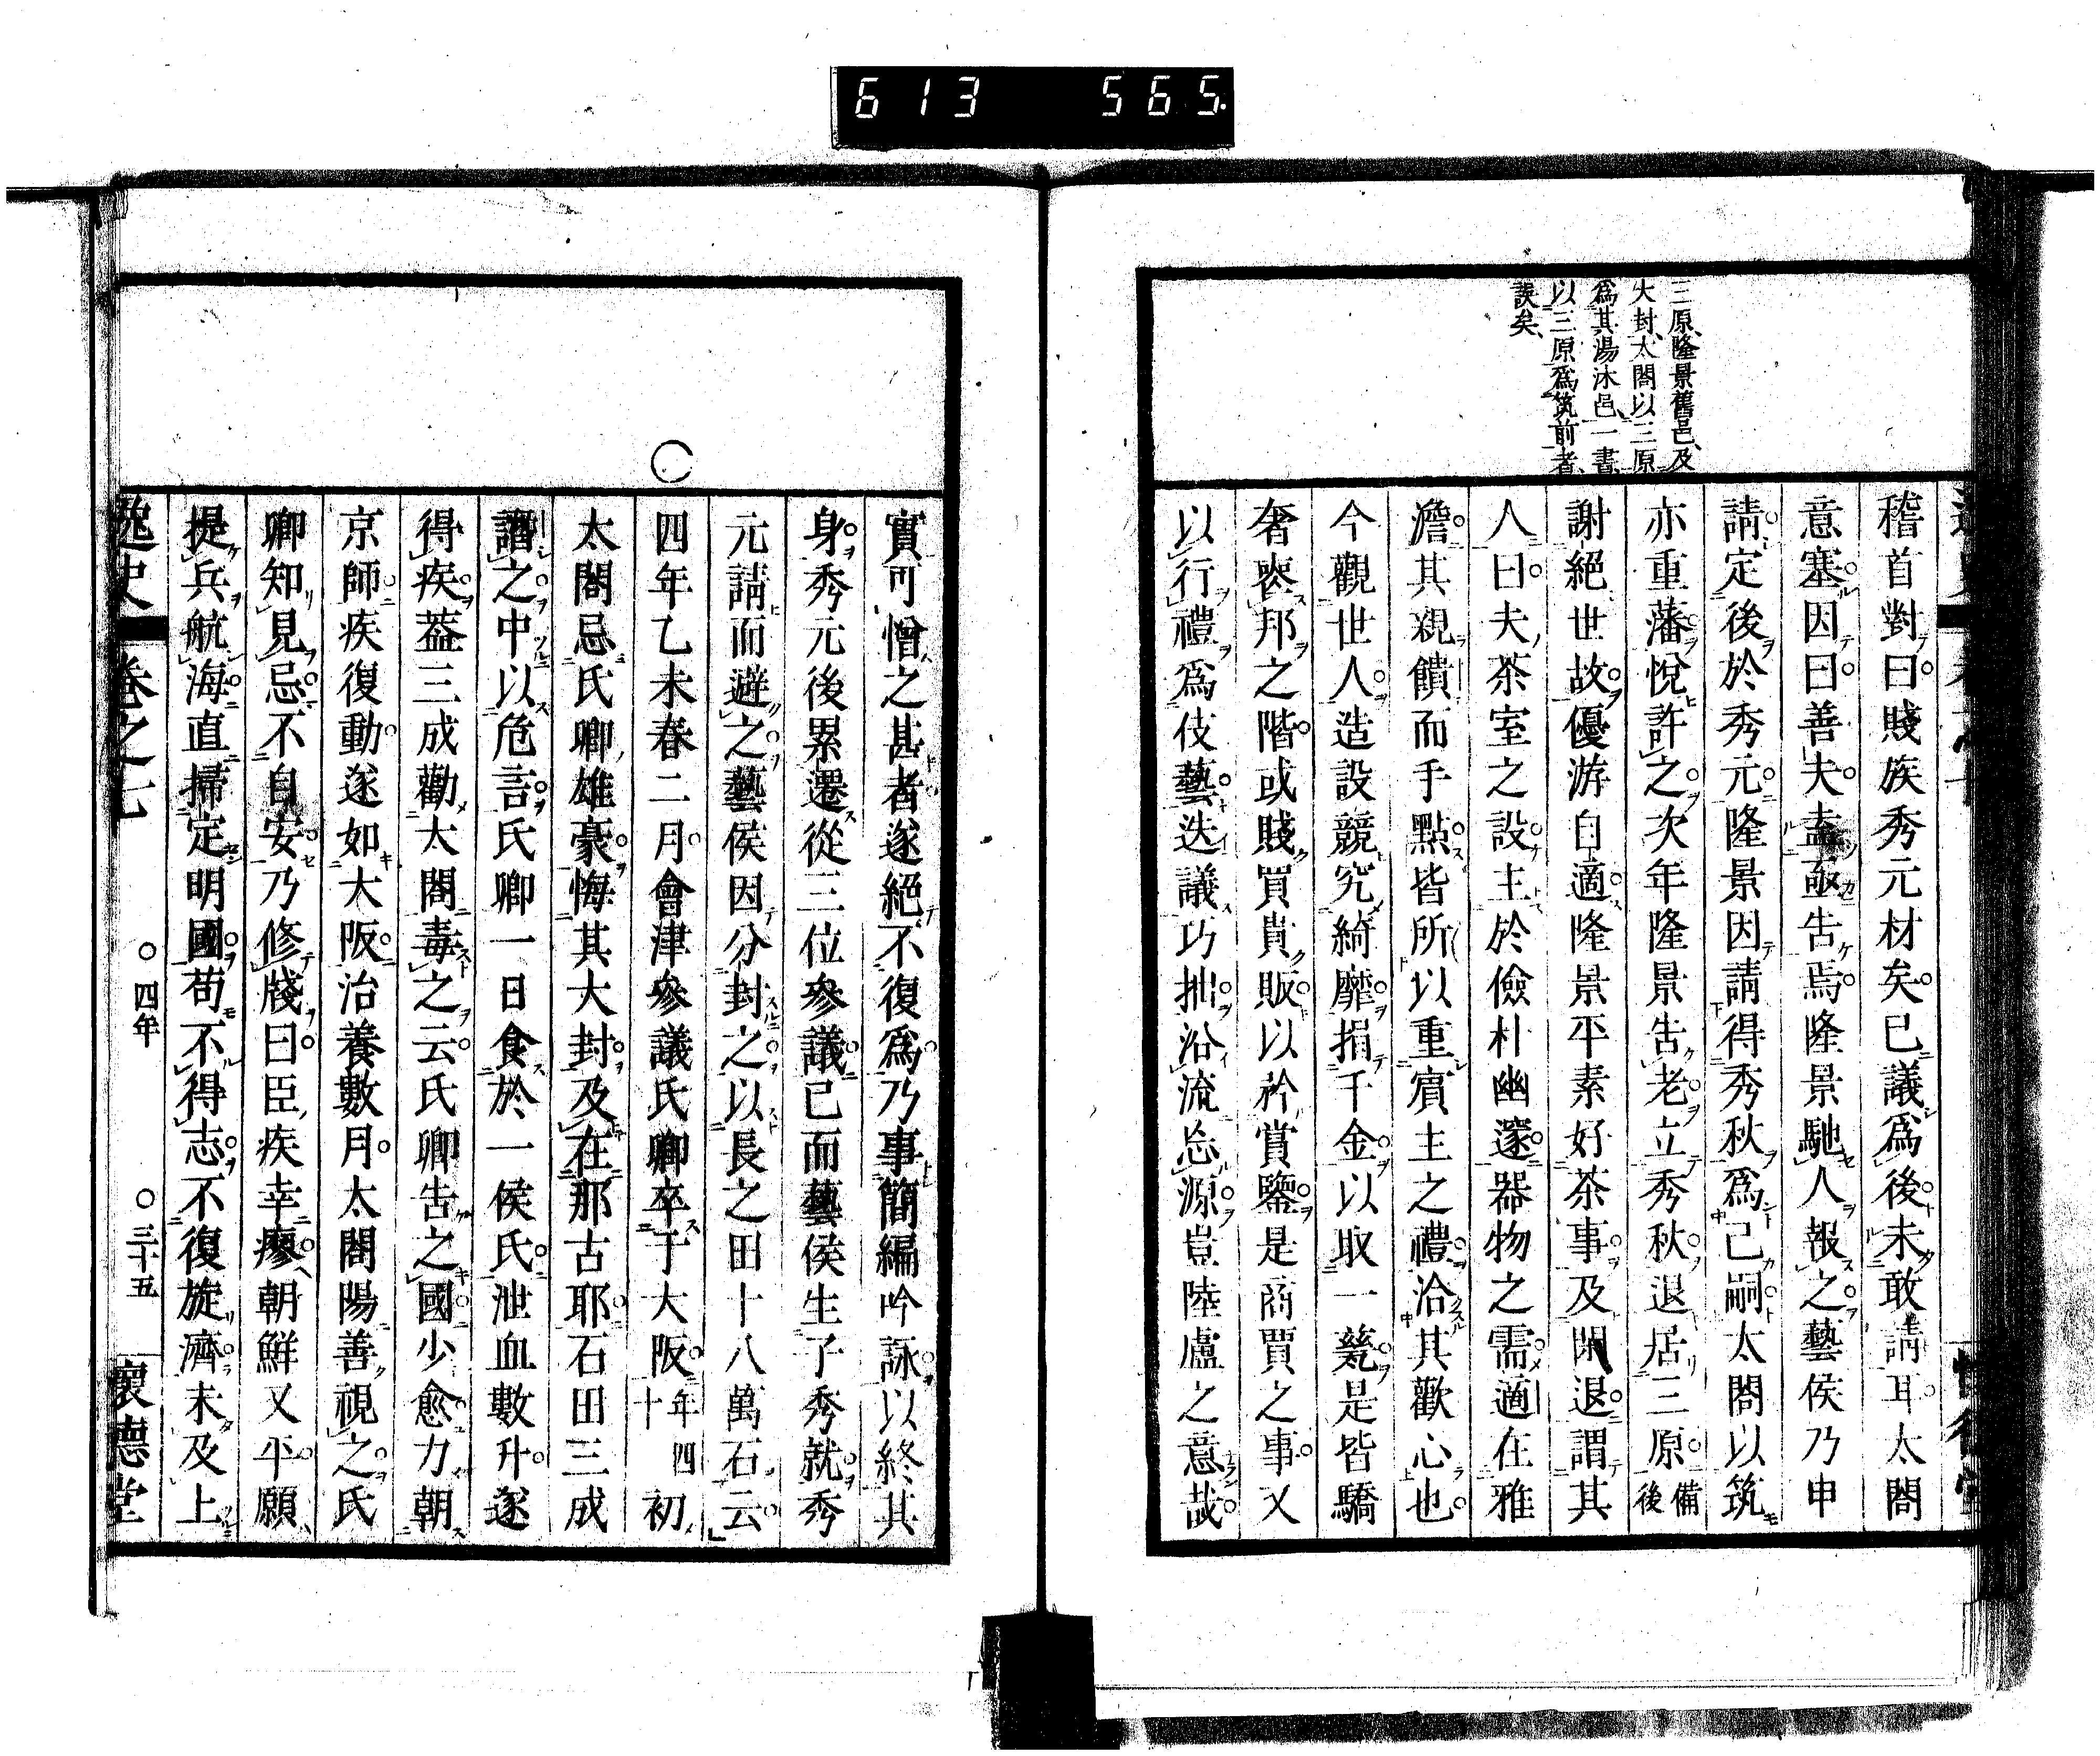 613 565
三原隆景舊邑、及
大封、太閤以三原
爲其湯沐邑、一書
以三原爲筑前者、
誤矣、
稽首對曰賤族秀元材矣已議爲後未敢請耳太閤
意塞因曰善夫盍亟吿焉隆景馳人報之藝侯乃申
請定後於秀元隆景因請得秀秋爲己嗣太閤以筑
亦重藩悅許之次年隆景吿老立秀秋退居三原備後
謝絕世故優游自適隆景平素好茶事及閑退謂其
人曰夫茶室之設主於儉朴幽邃器物之需適在雅
澹其親饋而手點皆所以重賓主之禮洽其歡心也
今觀世人造設競究綺靡捐千金以取一甆是皆驕
奢喪邦之階或賤買貴販以衿賞鑒是商賈之事乂
以行禮爲伎藝迭議巧拙沿流忘源豈陸盧之意哉
實可憎之甚者遂絕不復爲乃事簡編吟詠以終其
身秀元後累遷從三位參議已而藝侯生子秀就秀
元請而避之藝侯因分封之以長之田十八萬石云
○
四年乙未春二月會津參議氏卿卒于大阪年四十初
太閤忌氏卿雄豪悔其大封及在那古耶石田三成
譖之中以危言氏卿一日食於一侯氏泄血數升遂
得疾蓋三成勸太閤毒之云氏卿吿之國少愈力朝
京師疾復動遂如大阪治養數月太閤陽善視之氏
卿知見忌不自安乃修牋曰臣疾幸瘳朝鮮又平願
提兵航海直掃定明國苟不得志不復旋濟未及上
逸史 卷之七 ○四年 ○三十五 懷德堂